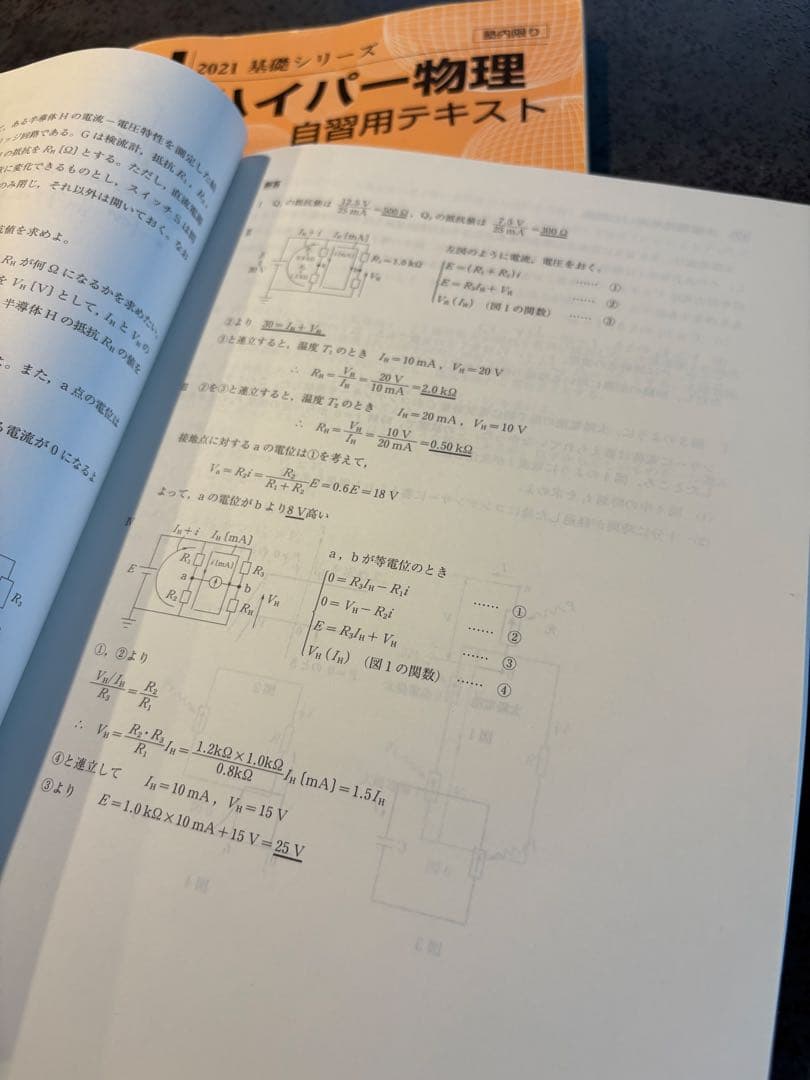 2021 基礎シリーズ
塾内限り
ハイパー物理
自習用テキスト
, ある半導体Hの電流-電圧特性を測定した結
リッジ回路である。Gは検流計, 抵抗R₁, R₂,
の抵抗をR_H〔Ω〕とする。ただし, 直流電源
に変化できるものとし, スイッチSは
のみ閉じ, それ以外は開いておく。なお
抗値を求めよ。
R_Hが何Ωになるかを求めたい。
をV_H〔V〕として, I_HとV_Hの
半導体Hの抵抗R_Hの値を
。また, a点の電位は
る電流が0になるよ
R₃
解答
I Q₁の抵抗値は 12.5V/25mA=500Ω, Q₂の抵抗値は 7.5V/25mA=300Ω
II
I_H+i I_H〔mA〕
R₃=1.0kΩ
V_H
左図のように電流, 電圧をおく。
E=(R₁+R₂)i …… ①
E=R₃I_H+V_H …… ②
V_H(I_H) (図1の関数) …… ③
②より 30=I_H+V_H
③と連立すると, 温度T₁のとき I_H=10mA, V_H=20V
∴ R_H=V_H/I_H=20V/10mA=2.0kΩ
III ②を③と連立すると, 温度T₂のとき I_H=20mA, V_H=10V
∴ R_H=V_H/I_H=10V/20mA=0.50kΩ
接地点に対するaの電位は①を考えて,
V_a=R₂i=R₂/(R₁+R₂)E=0.6E=18V
よって, aの電位がbより8V高い
IV
I_H+i I_H〔mA〕
E
R₁
i〔mA〕
R₃
a
b
R₂
R_H
V_H
a, bが等電位のとき
0=R₃I_H-R₁i …… ①
0=V_H-R₂i …… ②
E=R₃I_H+V_H …… ③
V_H(I_H) (図1の関数) …… ④
①, ②より
(V_H/I_H)/R₃=R₂/R₁
∴ V_H=(R₂・R₃/R₁)I_H=(1.2kΩ×1.0kΩ/0.8kΩ)I_H〔mA〕=1.5I_H
④と連立して I_H=10mA, V_H=15V
③より E=1.0kΩ×10mA+15V=25V